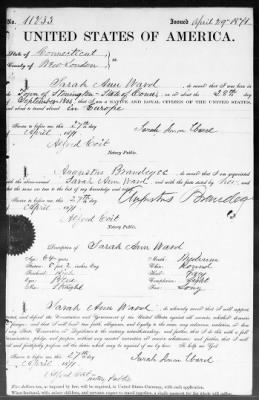 No. 11233 Issued April 29th 1871
UNITED STATES OF AMERICA.
State of Connecticut
County of New London ss.
I, Sarah Ann Ward, do swear that I was born in the
Town of Stonington State of Conn., on or about the 28th day
of September, that I am a NATIVE AND LOYAL CITIZEN OF THE UNITED STATES,
and about to travel abroad in Europe
Sworn to before me this 27th day
of April 1871
Sarah Ann Ward
Alfred Coit
Notary Public.
I, Augustus Brandegee, do swear that I am acquainted
with the above-named Sarah Ann Ward, and with the facts stated by her, and
that the same are true to the best of my knowledge and belief.
Sworn to before me this 27th day
of April 1871
Augustus Brandegee
Alfred Coit
Notary Public.
Description of Sarah Ann Ward
Age: 64 years Mouth: Medium
Stature: 5 feet 2 inches, Eng. Chin: Round
Forehead: Hair: Gray
Eyes: Complexion: Light
Nose: Straight Face: Long
I, Sarah Ann Ward, do solemnly swear that I will support,
protect, and defend the Constitution and Government of the United States against all enemies, whether domestic
or foreign; and that I will bear true faith, allegiance, and loyalty to the same, any ordinance, resolution, or law
of any State, Convention, or Legislature to the contrary notwithstanding; and further, that I do this with a full
determination, pledge, and purpose, without any mental reservation or evasion whatsoever; and further, that I will
well and faithfully perform all the duties which may be required of me by law. So help me God.
Sworn to before me this 27th day
of April 1871
Sarah Ann Ward
Alfred Coit
Notary Public